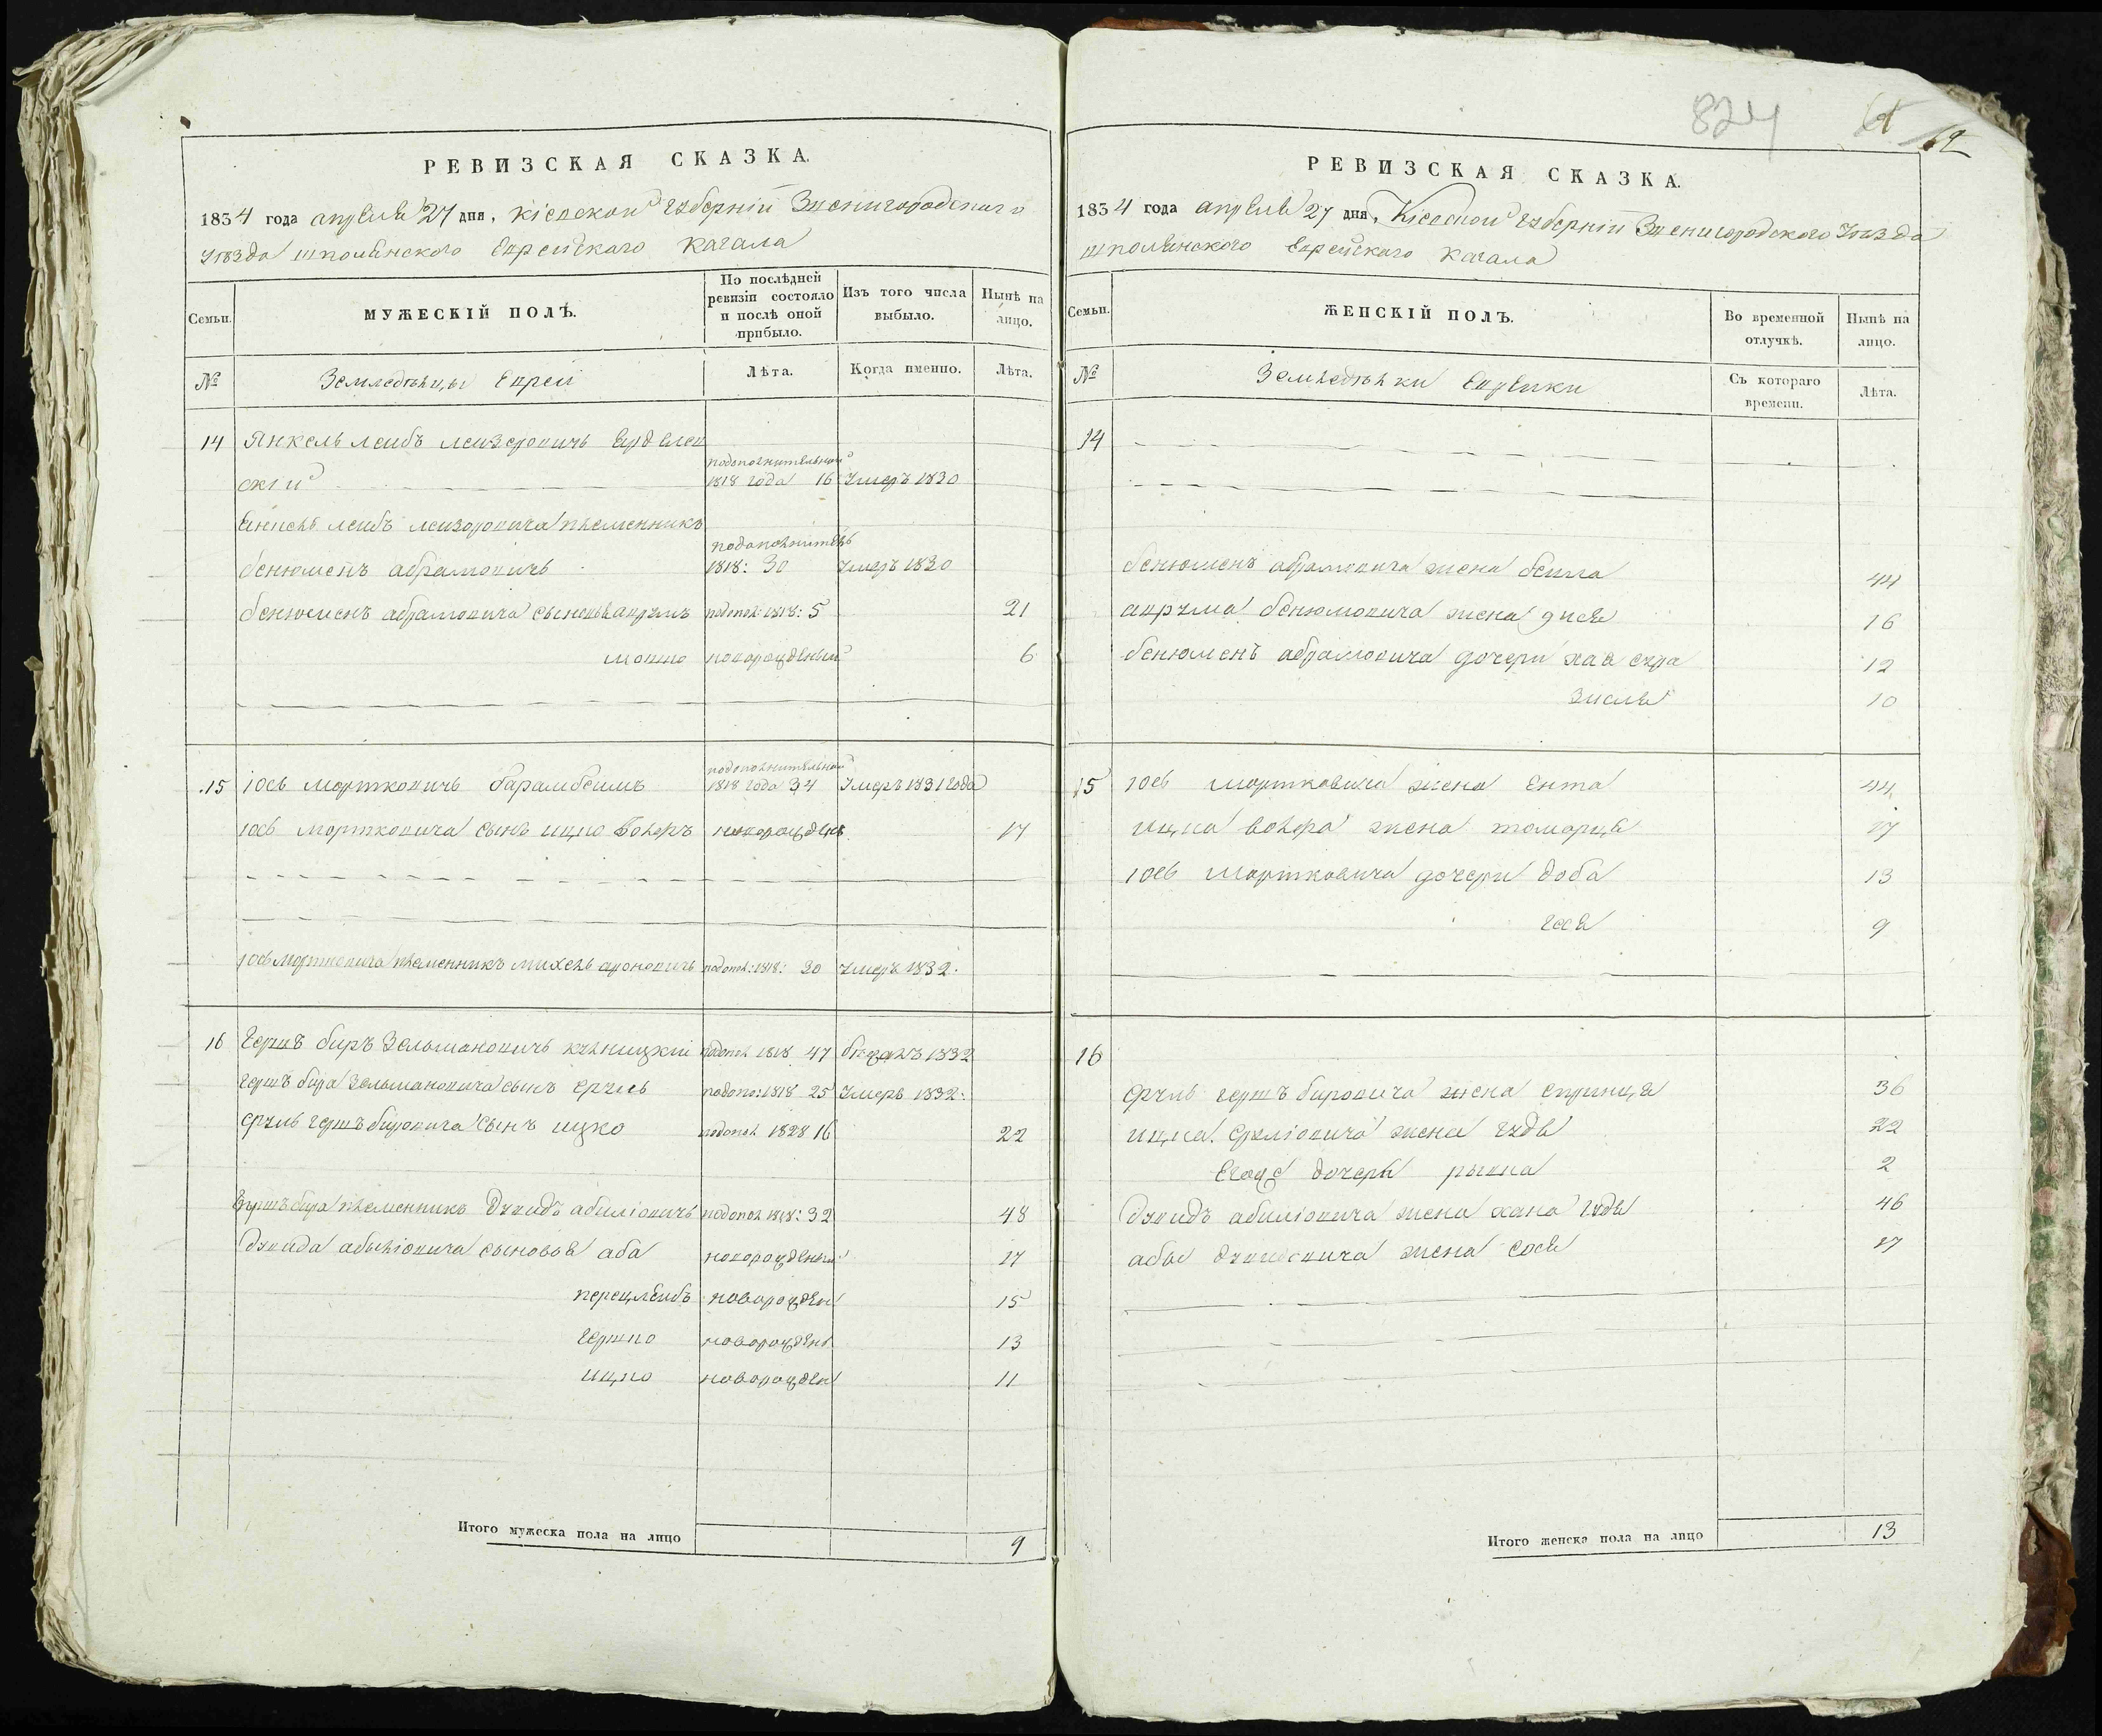 824
62
РЕВИЗСКАЯ СКАЗКА.
1834 года апреля 27 дня, Кіевской Губерніи Звенигородскаго
Уѣзда шполянского Еврейскаго Кагала
Семьи.
МУЖЕСКІЙ ПОЛЪ.
По послѣдней ревизіи состояло и послѣ оной прибыло.
Изъ того числа выбыло.
Нынѣ на лицо.
№
Земледѣлцы Евреи
Лѣта.
Когда именно.
Лѣта.
14 Янкель леибъ леизеровичь
скіи подополнителной 1818 года 16 Умеръ 1830
леибъ леизоровича племенникъ
бенюменъ абрамовичь подополнителъ 1818: 30 Умеръ 1830
бенюменъ абрамовича сыновья аврумъ подопол: 1818: 5 21
мошко новорожденый 6
15 Іось мортковичь барамбеимъ подополнителной 1818 года 34 Умеръ 1831 года
Іось мортковича сынъ ицко волфъ новорожденъ 17
Іось мортковича племенникъ михель ароновичь подопол: 1818: 20 Умеръ 1832.
16 Гершъ беръ Зельмановичь кулницкій подопол 1818 47 1832
гершъ бера зельмановича сынъ сруль подопо: 1818 25 Умеръ 1832:
сруль гершъ беровича сынъ ицко подопол 1828 16 22
Гершъ бера племенникъ Дувидъ абиліовичь подопол 1818: 32 48
Дувида абиліовича сыновья аба новорожденый 17
перецлеибъ новорожден 15
гершко новорожденъ 13
ицко новорожден 11
Итого мужеска пола на лицо 9
РЕВИЗСКАЯ СКАЗКА.
1834 года апреля 27 дня, Кіевской Губерніи Звенигородского Уѣзда
шполянского Еврейскаго Кагала
Семьи.
ЖЕНСКІЙ ПОЛЪ.
Во временной отлучкѣ.
Нынѣ на лицо.
№
Земледѣлки Еврейки
Съ котораго времени.
Лѣта.
14
бенюменъ абрамовича жена беила 44
аврума бенюмовича жена 16
бенюменъ абрамовича дочери хая сура 12
зисля 10
15 Іось мортковича жена Ента 44
ицка волфа жена томарця 17
Іось мортковича дочери доба 13
9
16
сруль гершъ беровича жена спринця 36
ицка сруліовича жена гудя 22
Егоже дочерь рывка 2
Дувидъ абиліовича жена хана гудя 46
абы дувидовича жена сося 17
Итого женска пола на лицо 13